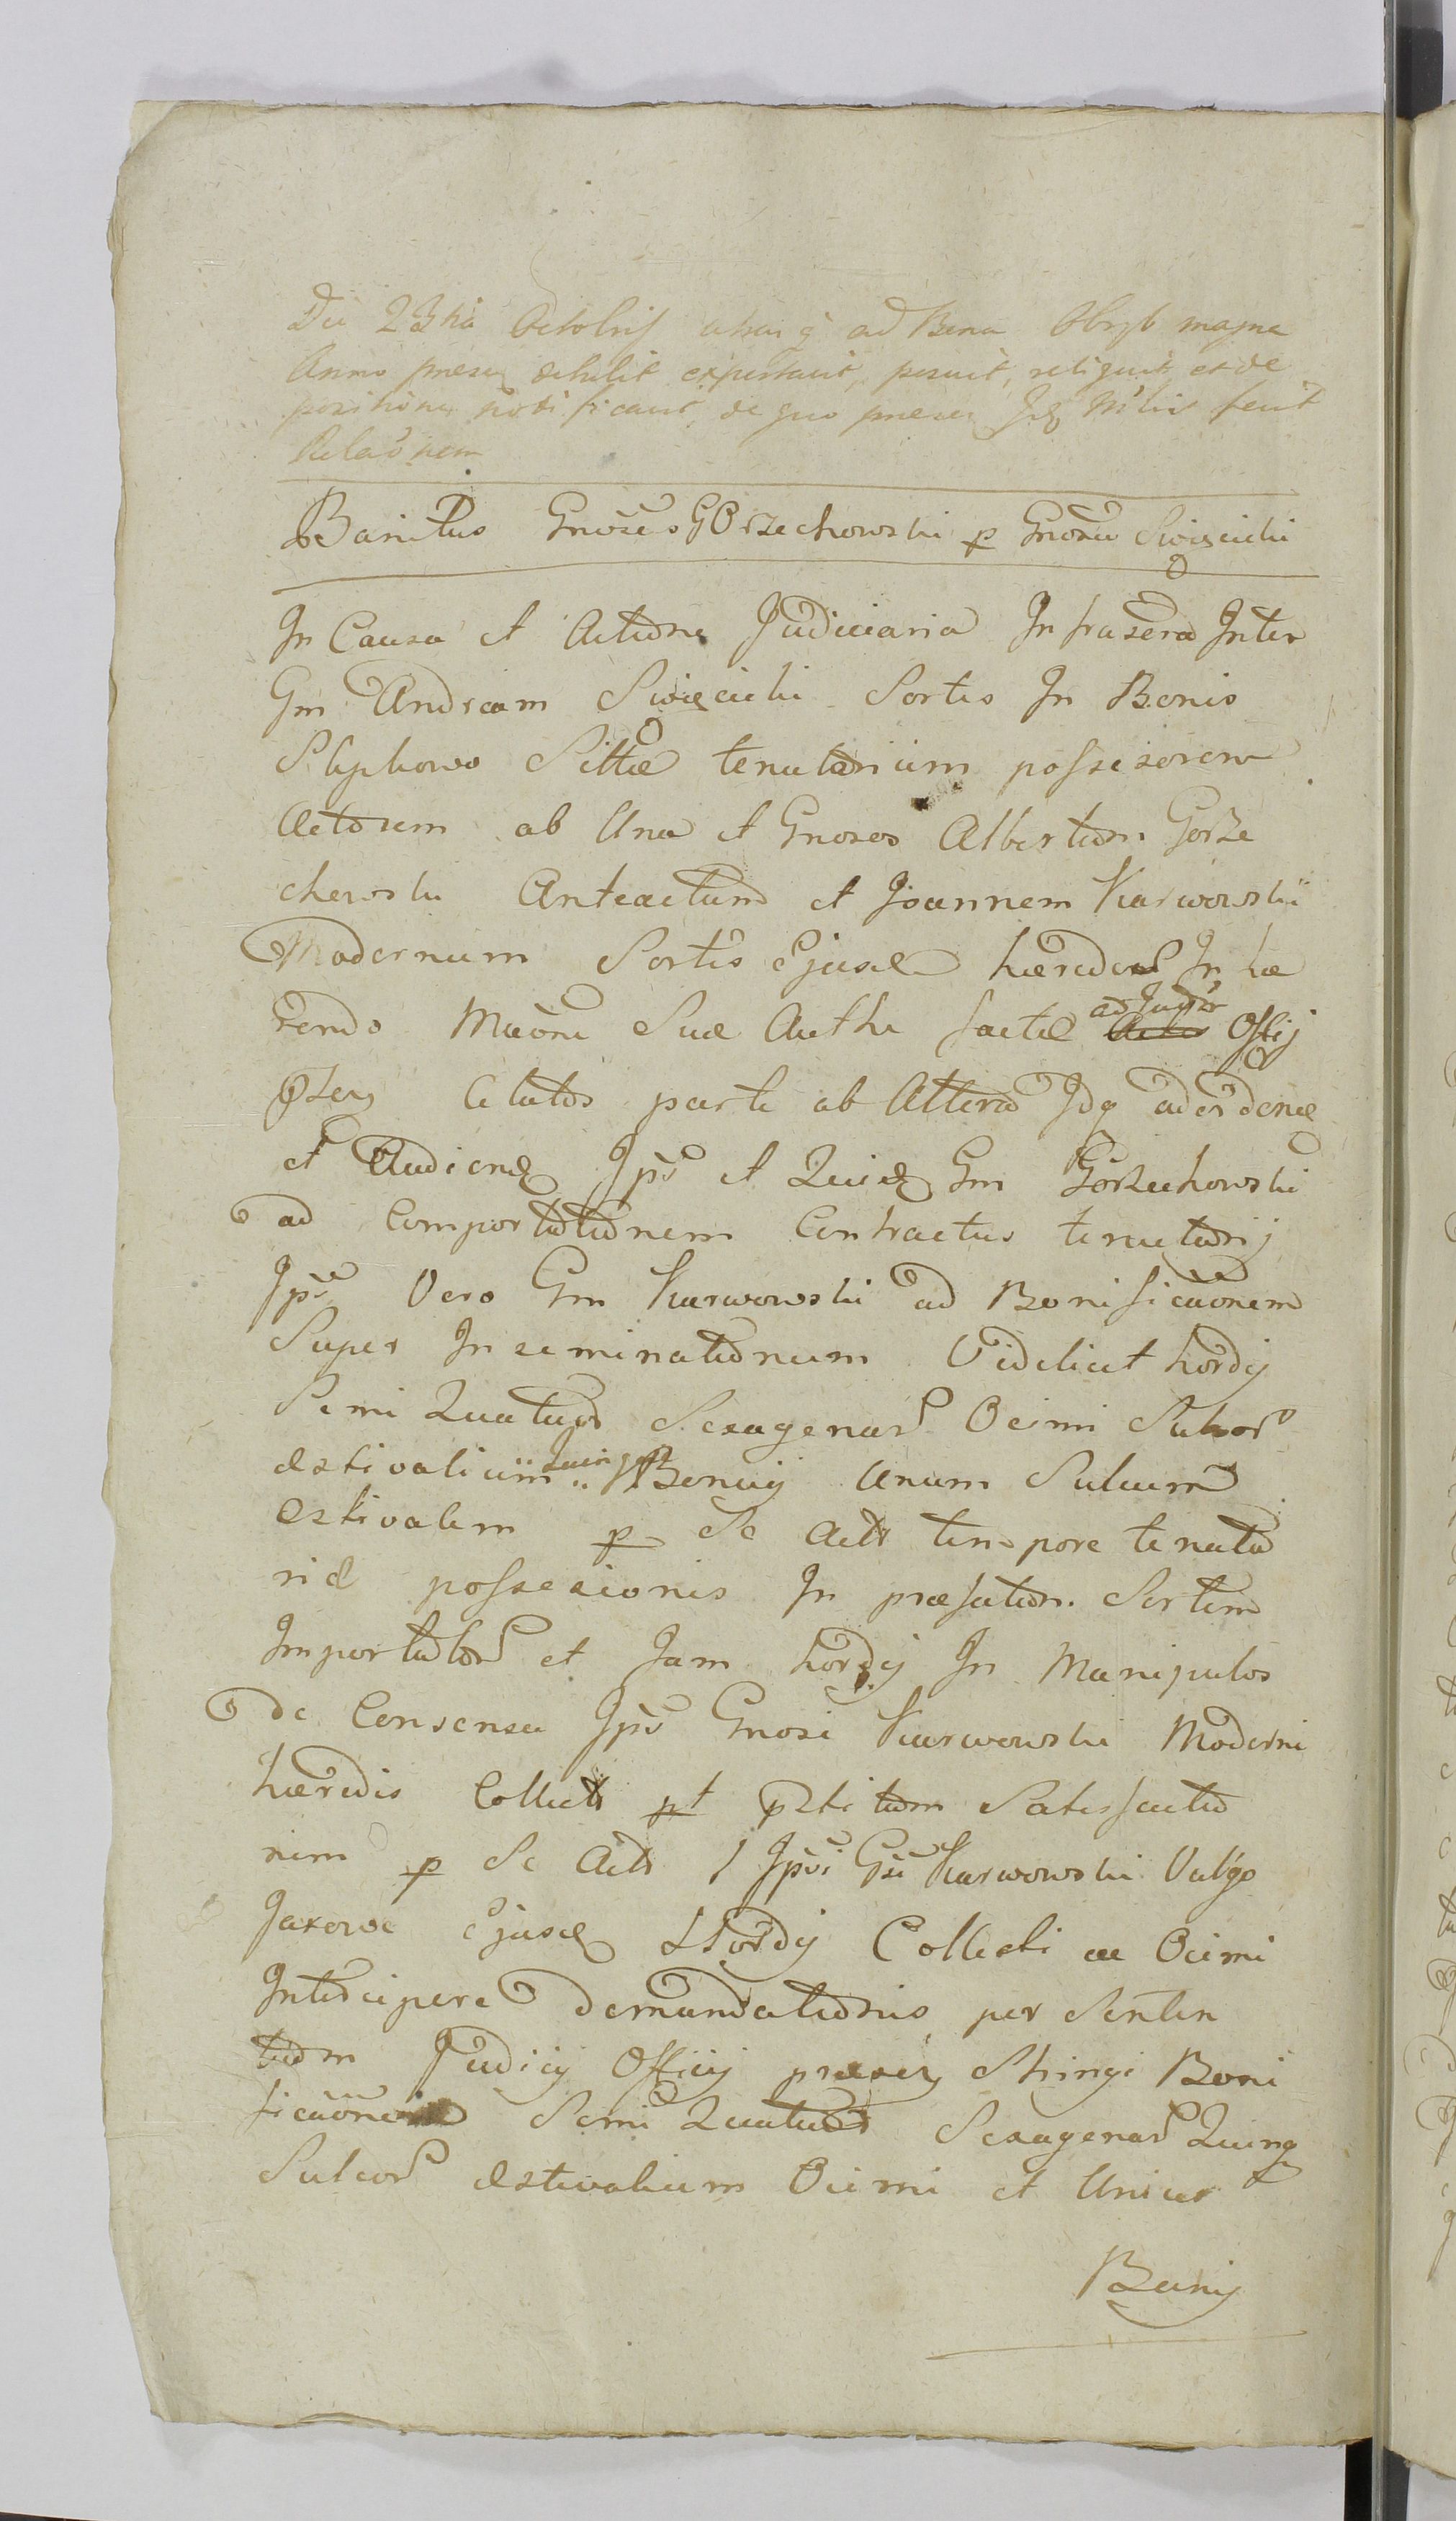 Die 23tia Octobris ad Bona Obryb magna
Anno praesen detulit, posuit, reliquit, et de
positione notificavit, de quo praesen fecit
Relaonem
Banitus Gnosus Gorzechowski p Gnosu Swięcicki
In Causa et Actione Judiciaria Infrascra Inter
Gm Andream Swięcicki Sortis In Bonis
Slepkowo Sittae tenutarium possesorem
Actorem ab Una et Gnosos Albertum Gorze
chowski Anteactum et Joannem Karwowski
Modernum Sortis Ejusd haeredes In hae
rendo Maoni Suae Authe factae ad Offij
Citatos parte ab Altera Idq ad
et Audiend Ips et Quid Gm Gorzechowski
ad Comportationem Contractus tenutarij
Ips Vero Gm Karwowski ad Bonificaonem
Super Inseminationum Videlicet hordij
Semi Quatuor Sexagenar Ocimi Sulcor
estivalium Quinque Unum Sulcum
estivalem p Se Act tempore tenuta
riae possesionis In praefatam Sortem
Importator et Jam hordij In Manipulos
de Consensu Ips Gnosi Karwowski Moderni
haeredis Collect pt Satisfactio
nem p Se Act Ipsi Gsi Karwowski Vulgo
Jarowe Ejusd Hordij Collecti ac Ocimi
Intercipere demandationis per Senten
tiam Judicij Officij praesen Stringi Boni
ficaone Semi Quatuor Sexagenar Quinq
Sulcor estivalium Ocimi et Unius